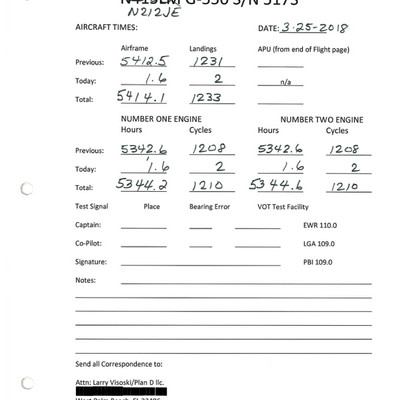 N415LM G-550 S/N 5173
N212JE
AIRCRAFT TIMES: DATE: 3-25-2018
Airframe Landings APU (from end of Flight page)
Previous: 5412.5 1231
Today: 1.6 2 n/a
Total: 5414.1 1233
NUMBER ONE ENGINE NUMBER TWO ENGINE
Hours Cycles Hours Cycles
Previous: 5342.6 1208 5342.6 1208
Today: 1.6 2 1.6 2
Total: 5344.2 1210 5344.6 1210
Test Signal Place Bearing Error VOT Test Facility
Captain: EWR 110.0
Co-Pilot: LGA 109.0
Signature: PBI 109.0
Notes:
Send all Correspondence to:
Attn: Larry Visoski/Plan D llc.
West Palm Beach, FL 33406